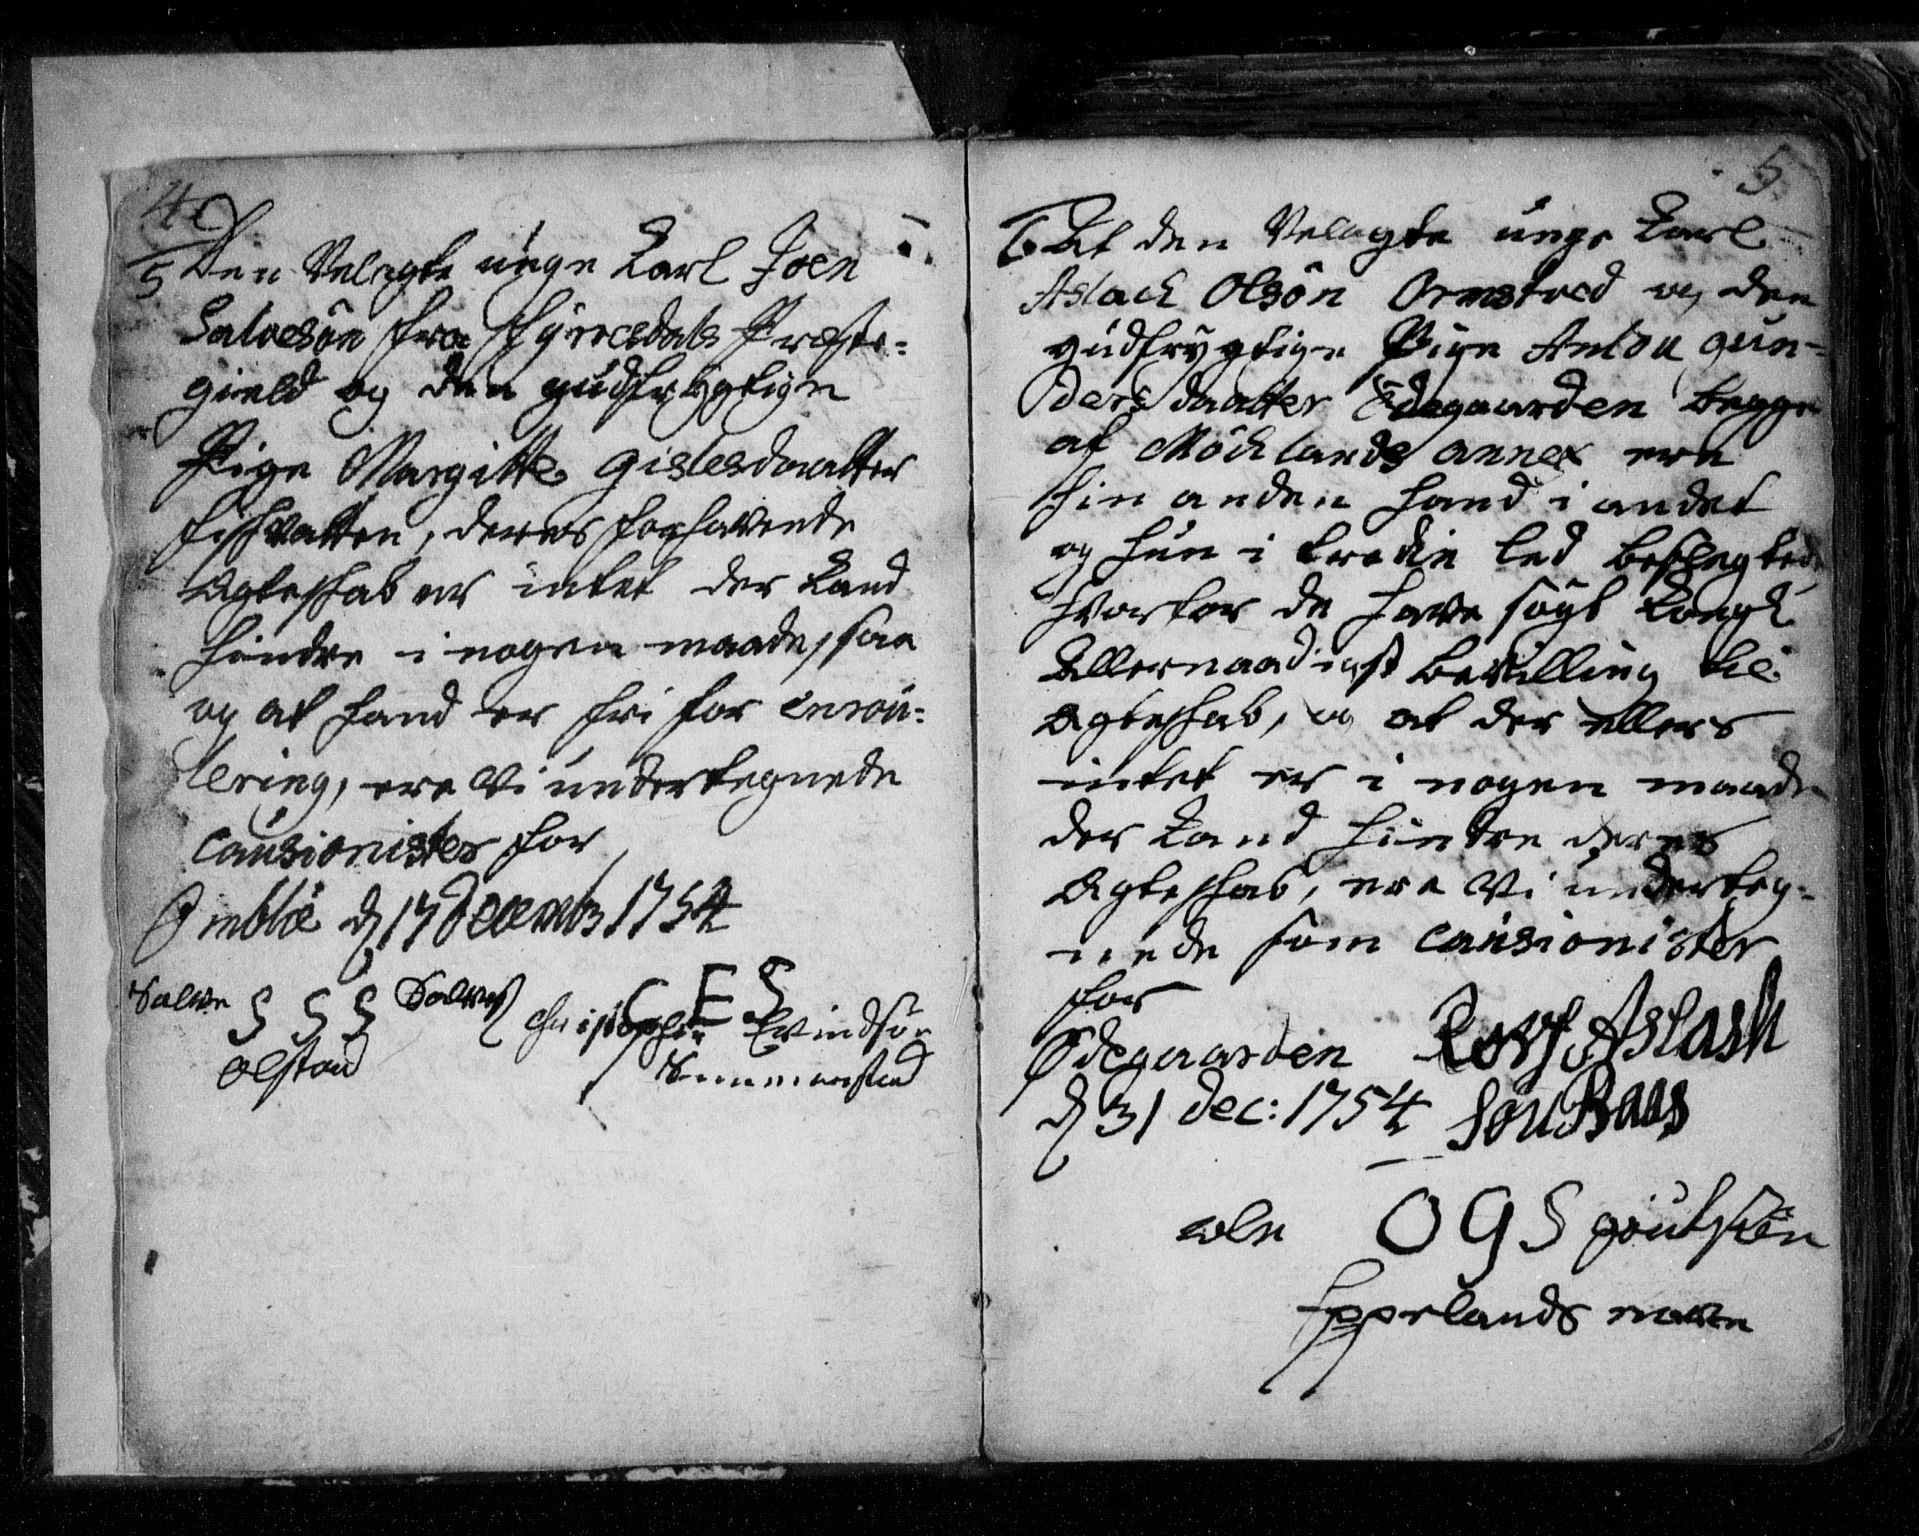 4
5 Den Velagte unge Karl Joen
Salvesön fra Fyrresdals Præste=
gield og den gudfrygtige
Pige Margitte Gislesdaatter
Fischvatten, deres forhavende
Ægteskab er intet der kand
hindre i nogen maade, saa
og at hand er fri for Enroul=
lering, ere Vi undertegnede
Causionister for
d 17 Decembr 1754
Salve S S S Salves
Olstad
Christopher C E S Evindsön
5
6 At den Velagte unge Karl
Aslach Olsön Ormstved og den
gudfrygtige Pige Anlou Gun-
ders daatter Ödegaarden begge
af Möchlands annex ere
hin anden hand i andet
og hun i tredie led beslegtede
hvorfor de have sögt Kongl
Allernaadigst bevilling til
Ægteskab, og at der ellers
intet er i nogen maade
der kand hindre deres
Ægteskab, ere Vi underteg-
nede som Causionister
for
Ödegaarden Rolf Aslach
d 31 Dec: 1754 Sön Baas
ole O G S goutsön
Epelands moen